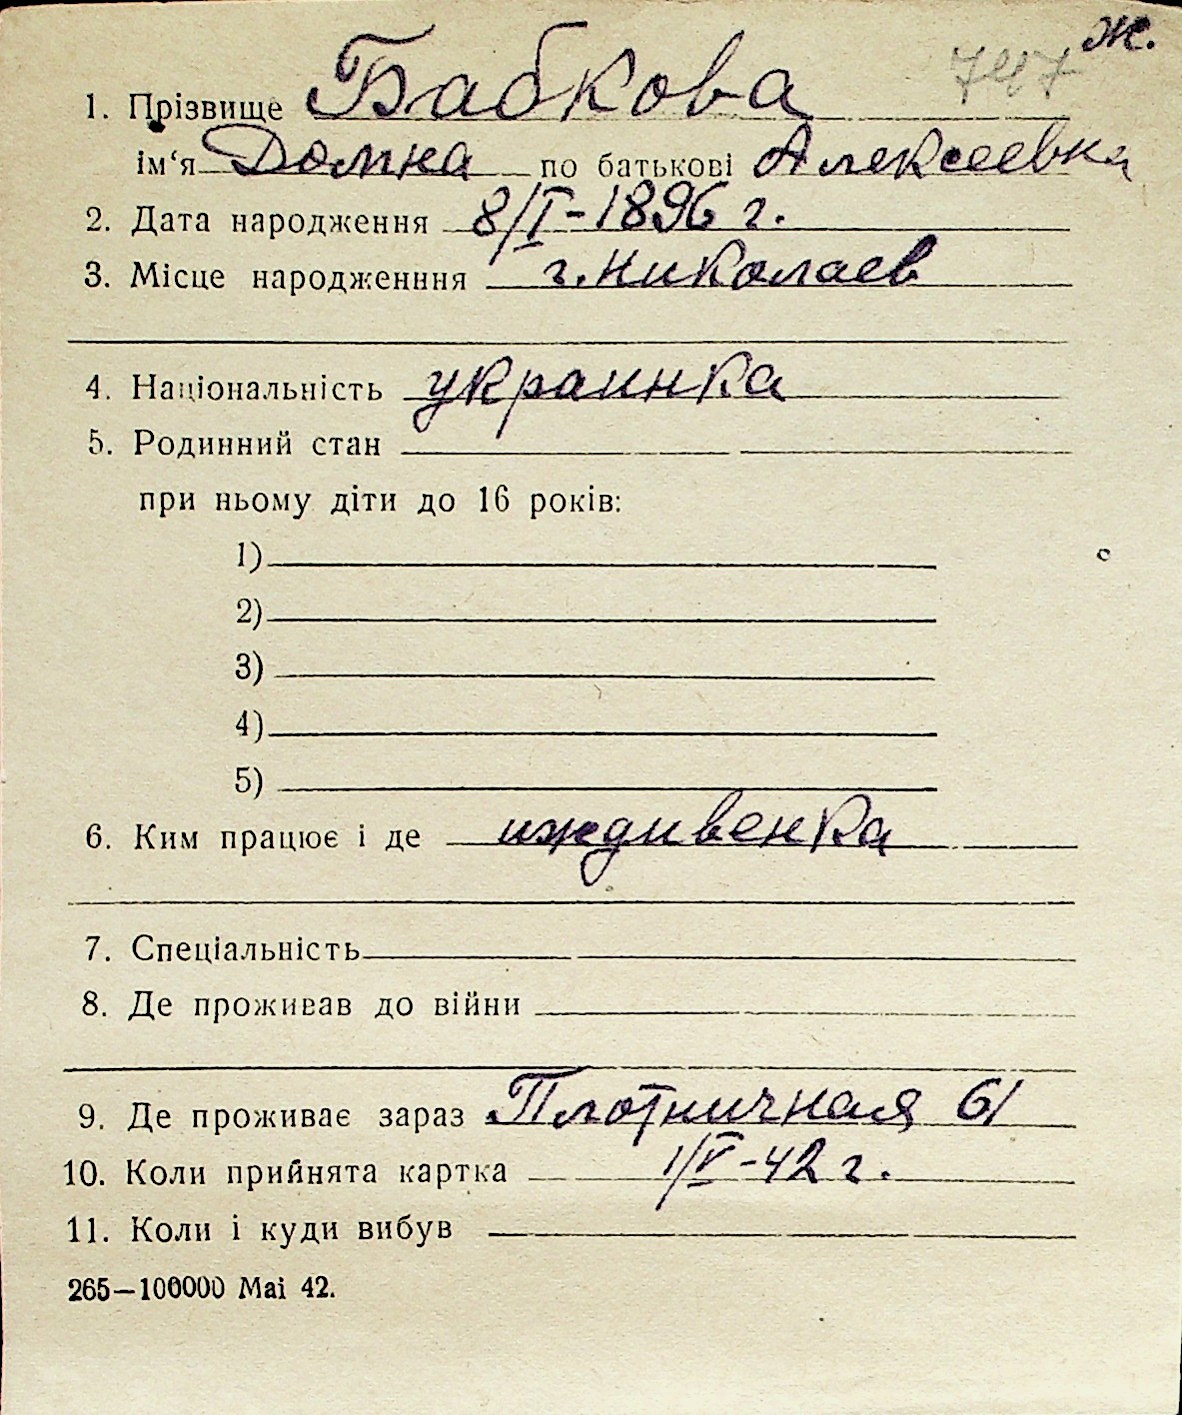 ж.
747
1. Прізвище Бабкова
ім‘я Домна по батькові Алексеевна
2. Дата народження 8/I-1896 г.
3. Місце народженння г. Николаев
4. Національність украинка
5. Родинний стан
при ньому діти до 16 років:
1)
2)
3)
4)
5)
6. Ким працює і де иждивенка
7. Спеціальність
8. Де проживав до війни
9. Де проживає зараз Плотничная 61
10. Коли прийнята картка 1/V-42 г.
11. Коли і куди вибув
265—100000 Mai 42.